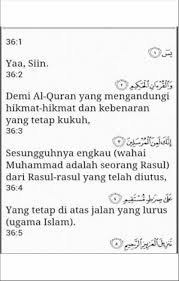 36:1
يسٓ ﴿١﴾
Yaa, Siin.
36:2
وَالْقُرْآنِ الْحَكِيمِ ﴿٢﴾
Demi Al-Quran yang mengandungi
hikmat-hikmat dan kebenaran
yang tetap kukuh,
36:3
إِنَّكَ لَمِنَ الْمُرْسَلِينَ ﴿٣﴾
Sesungguhnya engkau (wahai
Muhammad adalah seorang Rasul)
dari Rasul-rasul yang telah diutus,
36:4
عَلَىٰ صِرَاطٍ مُّسْتَقِيمٍ ﴿٤﴾
Yang tetap di atas jalan yang lurus
(ugama Islam).
36:5
تَنزِيلَ الْعَزِيزِ الرَّحِيمِ ﴿٥﴾